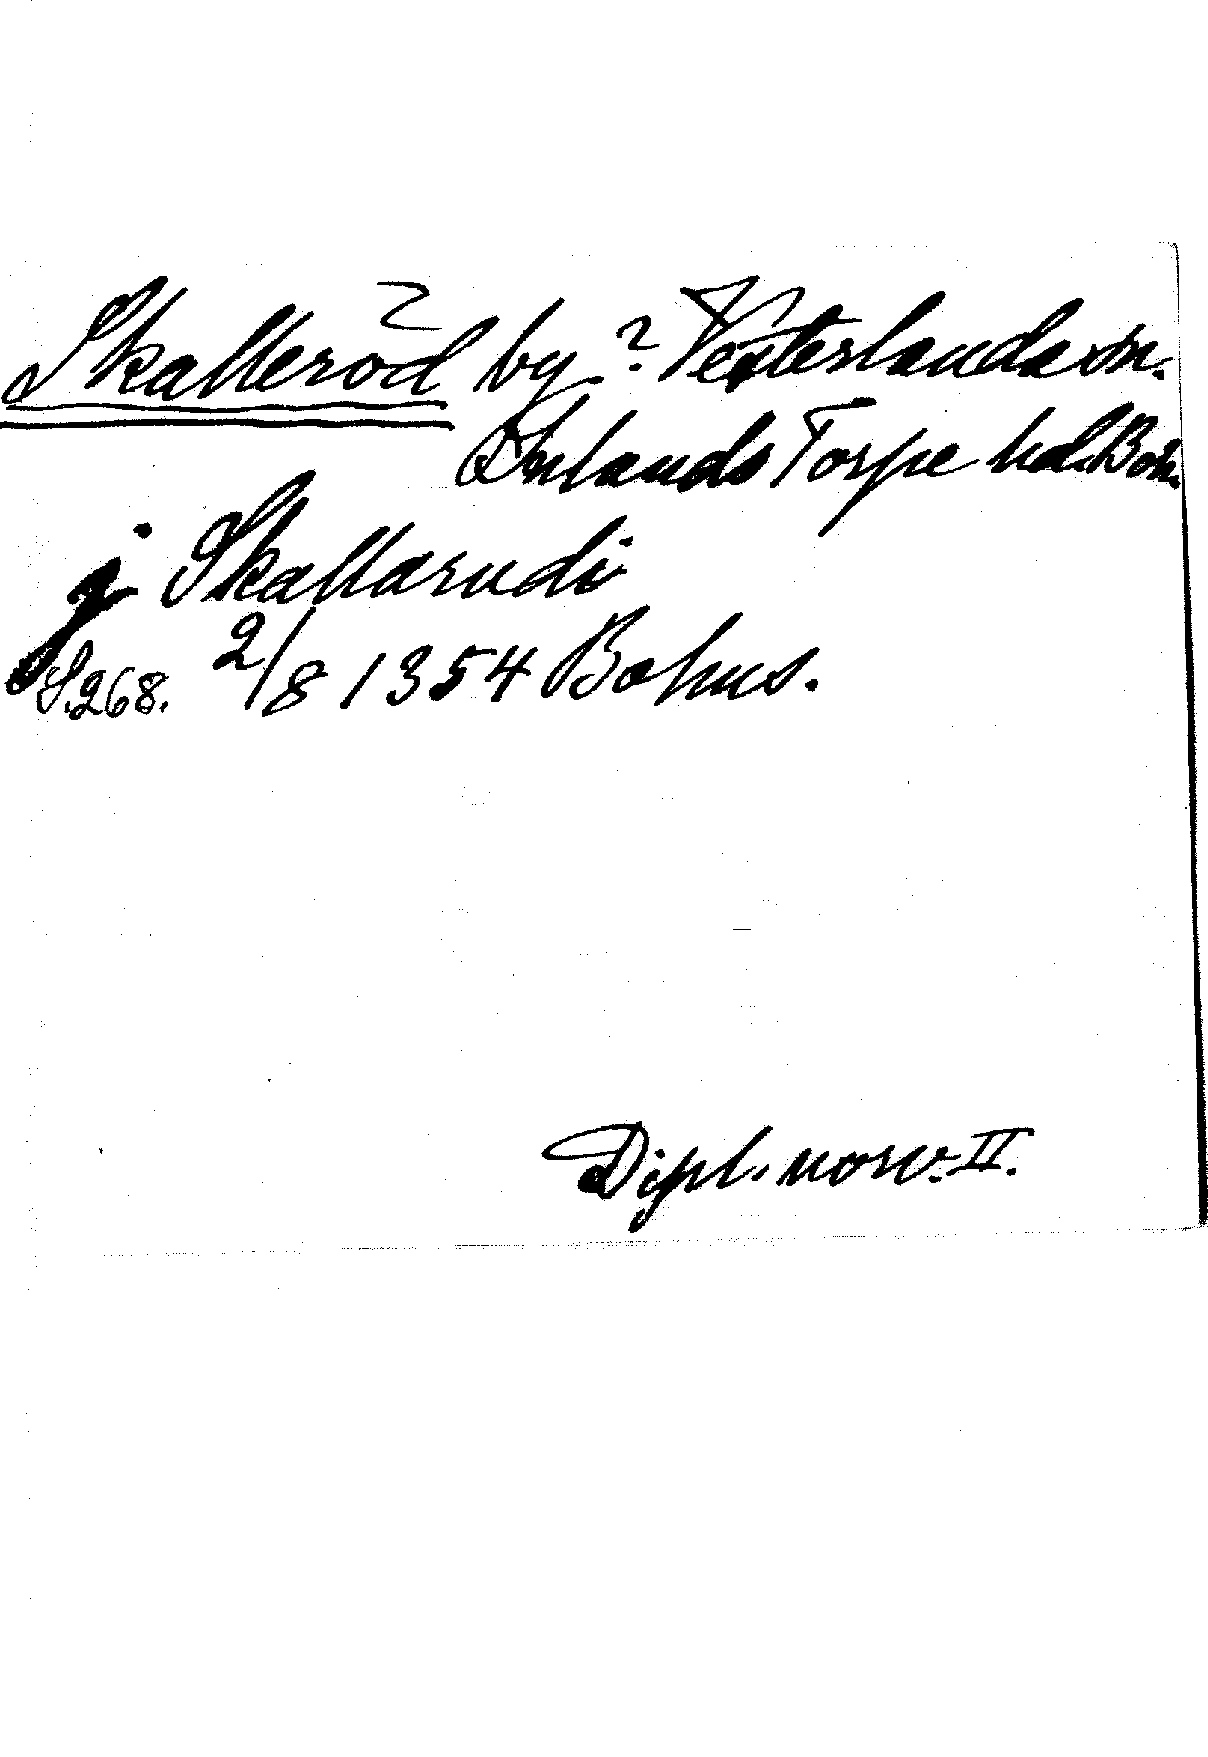 Skalleröd by? Vesterlanda sn.
Inlands Torpe hd. Boh.
j Skallarudi
S. 268. 2/8 1354 Bohus.
Dipl. norv. II.